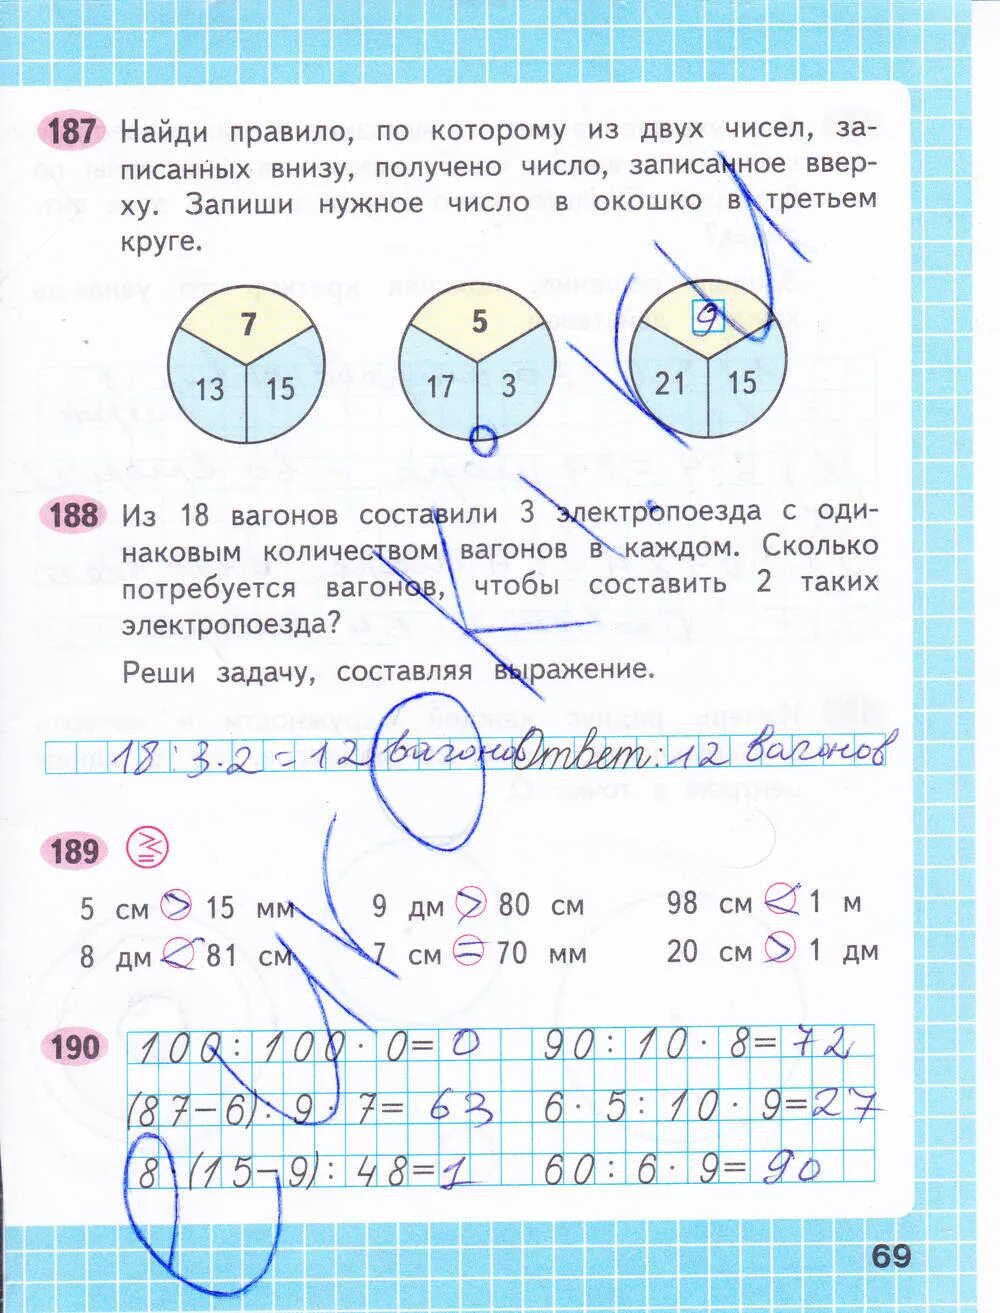 187 Найди правило, по которому из двух чисел, за-
писанных внизу, получено число, записанное ввер-
ху. Запиши нужное число в окошко в третьем
круге.
7 5 9
13 15 17 3 21 15
188 Из 18 вагонов составили 3 электропоезда с оди-
наковым количеством вагонов в каждом. Сколько
потребуется вагонов, чтобы составить 2 таких
электропоезда?
Реши задачу, составляя выражение.
18 : 3·2 = 12 вагонов Ответ: 12 вагонов
189 > < =
5 см > 15 мм 9 дм > 80 см 98 см < 1 м
8 дм < 81 см 7 см = 70 мм 20 см > 1 дм
190 100 : 100 · 0 = 0 90 : 10 · 8 = 72
(87 − 6) : 9 · 7 = 63 6 · 5 : 10 · 9 = 27
8 · (15 − 9) : 48 = 1 60 : 6 · 9 = 90
69